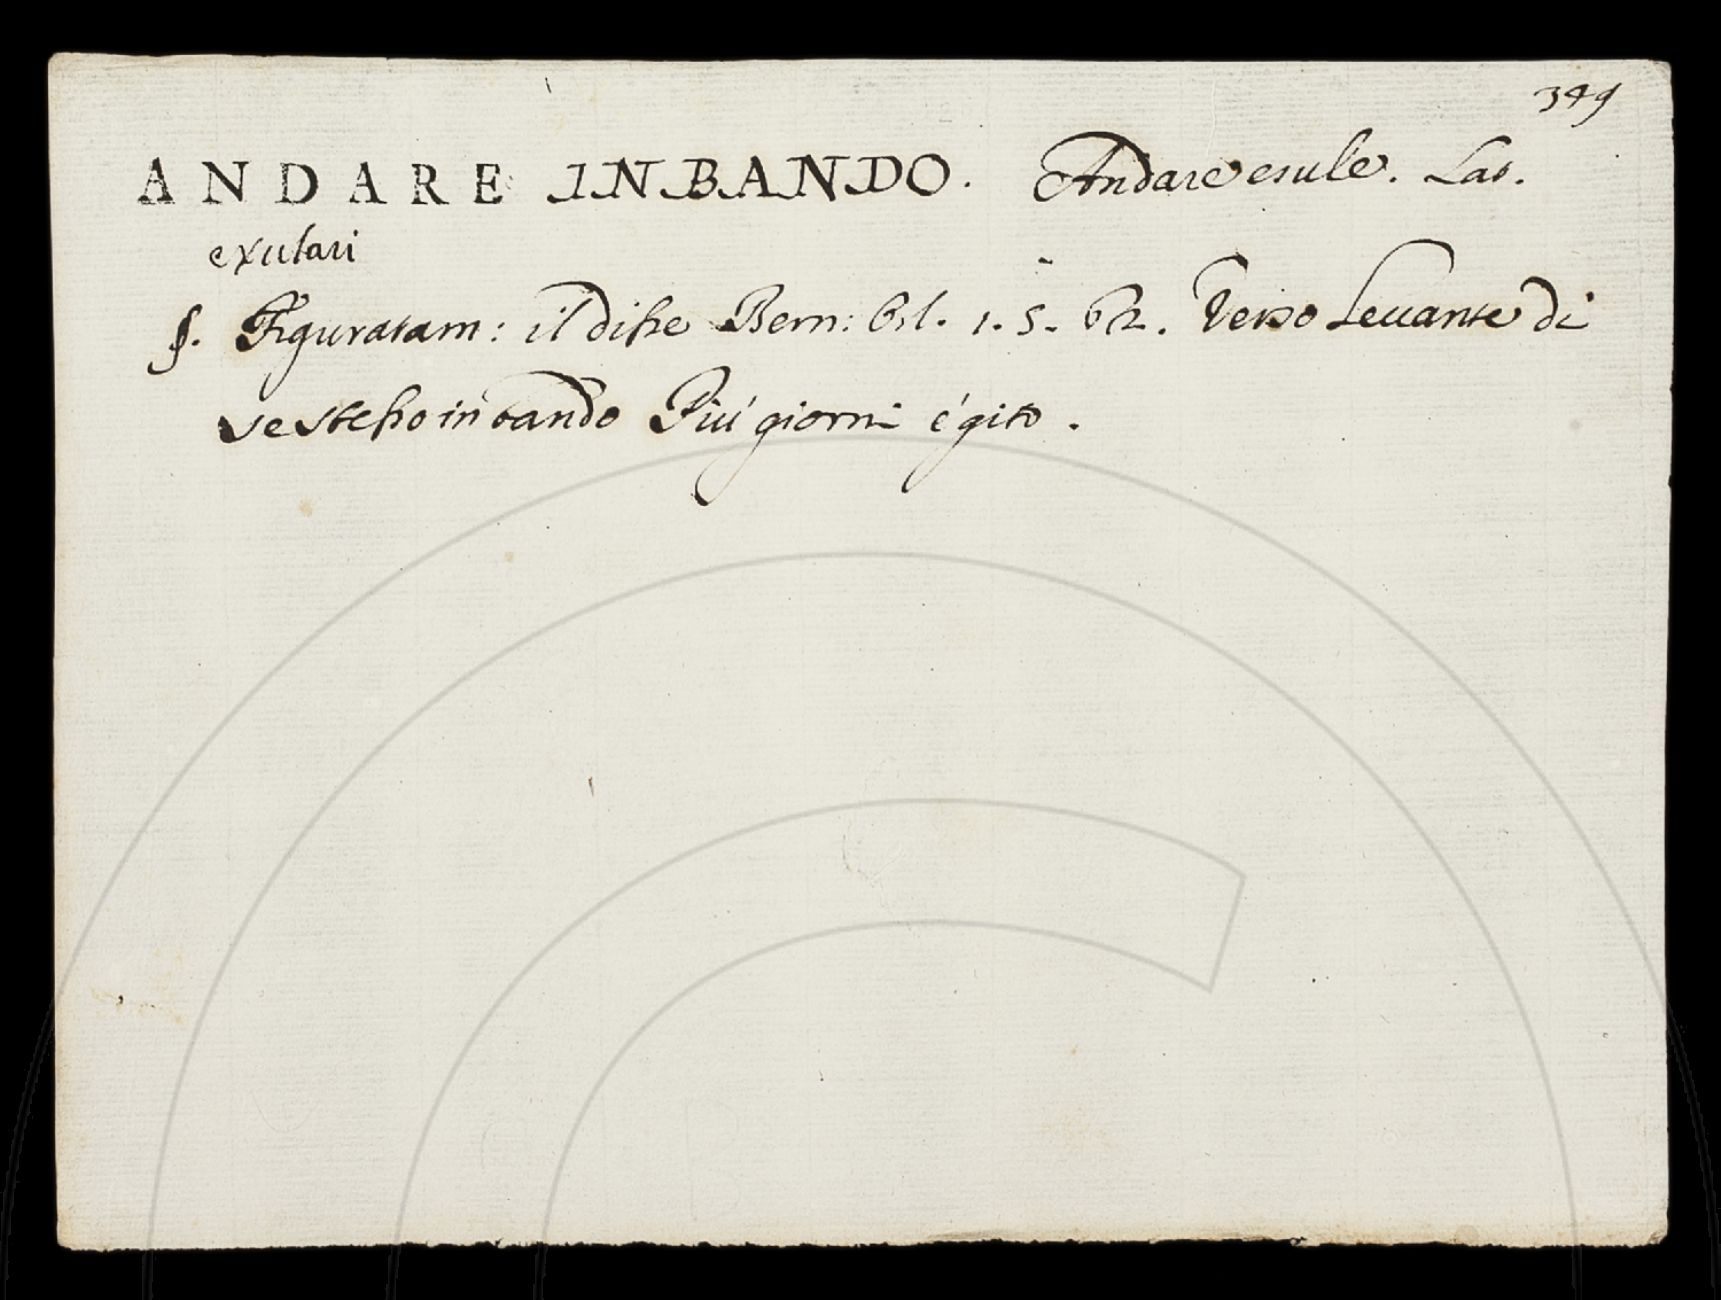 349
ANDARE IN BANDO. Andare esule. Lat.
exulari
§. Figuratam: il disse Bern: Orl. 1. 5. 62. Verso Levante di
se stesso in bando Piú giorni é gito.